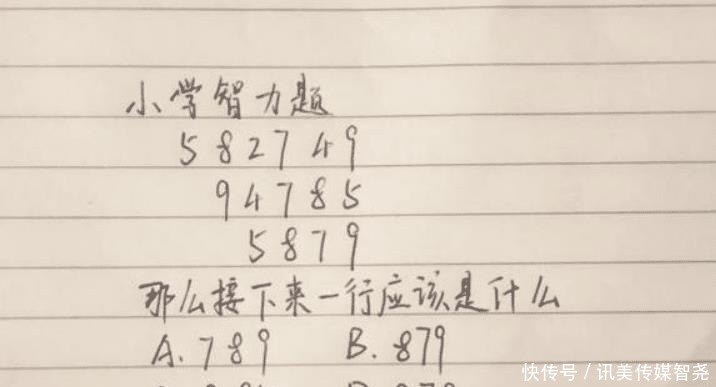 小学智力题
582749
94785
5879
那么接下来一行应该是什么
A.789 B.879
快传号/讯美传媒智尧